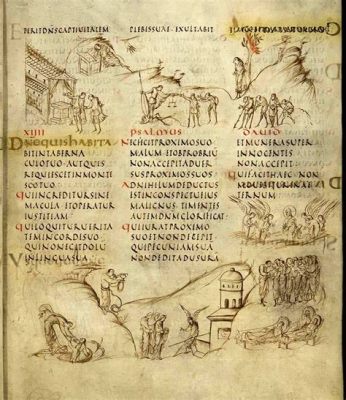 PERITDNSCAPTIUITATEM PLEBISSUAE EXULTABIT
XIIII
DNEQUISHABITA
BITINTABERNA
CULOTUOAUTQUIS
REQUIESCETINMONTE
SCOTUO
QUIINGREDITURSINE
MACULAETOPERATUR
IUSTITIAM
QUILOQUITURUERITA
TEMINCORDESUO
QUINONEGITDOLU
INLINGUASUA
PSALMUS
NECFECITPROXIMOSUO
MALUMETOBPROBRIU
NONACCEPITADUER
SUSPROXIMOSSUOS
ADNIHILUMDEDUCTUS
ESTINCONSPECTUEIUS
MALIGNUS TIMENTES
AUTEMDNMGLORIFICAT
QUIIURATPROXIMO
SUOETNONDECIPIT
QUIPECUNIAMSUA
NONDEDITADUSURA
DAUID
ETMUNERASUPER
INNOCENTES
NONACCEPIT
QUIFACITHAEC NON
MOUEBITURINAE
TERNUM